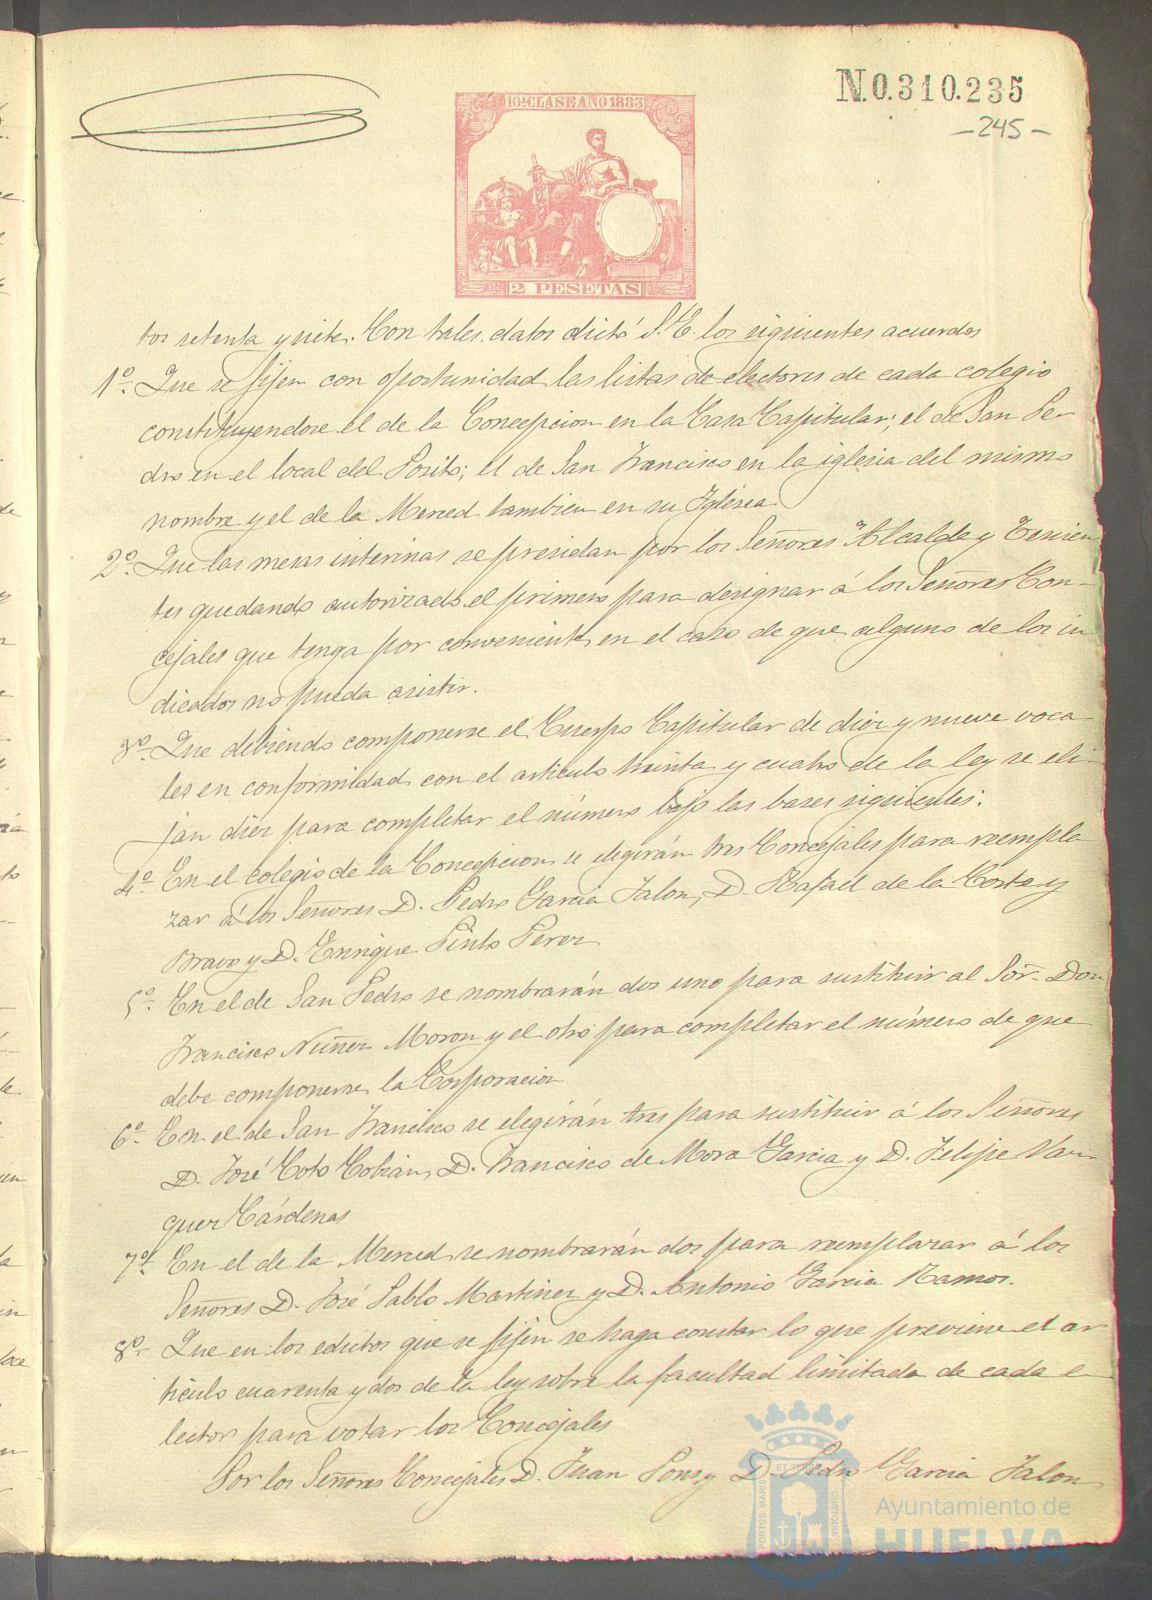 N.0.310.235
-245-
10ª CLASE AÑO 1883
2 PESETAS
tos setenta y siete. Con tales datos dictó S. E. los siguientes acuerdos
1º. Que se fijen con oportunidad las listas de electores de cada colegio
constituyendose el de la Concepcion en la Casa Capitular; el de San Pe-
dro en el local del Posito; el de San Francisco en la iglesia del mismo
nombre y el de la Merced tambien en su Iglesia
2º. Que las mesas interinas se presidan por los Señores Alcalde y Tenien
tes quedando autorizado el primero para designar á los Señores Con-
cejales que tenga por conveniente en el caso de que alguno de los in
dicados no pueda asistir.
3º. Que debiendo componerse el Cuerpo Capitular de diez y nueve voca-
les en conformidad con el articulo treinta y cuatro de la ley se eli-
jan diez para completar el número bajo las bases siguientes:
4º. En el colegio de la Concepcion se elegirán tres Concejales para reempla
zar á los Señores D. Pedro Garcia Jalon, D. Rafael de la Corte y
Bravo y D. Enrique Pinto Perez
5º. En el de San Pedro se nombrarán dos uno para sustituir al Sor. Don
Francisco Nuñez Moron y el otro para completar el número de que
debe componerse la Corporacion
6º. En el de San Francisco se elegirán tres para sustituir á los Señores
D. José Coto Cobian, D. Francisco de Mora Garcia y D. Felipe Vaz-
quez Cárdenas
7º. En el de la Merced se nombrarán dos para reemplazar á los
Señores D. José Pablo Martinez y D. Antonio Garcia Ramos.
8º. Que en los edictos que se fijen se haga constar lo que previene el ar
ticulo cuarenta y dos de la ley sobre la facultad limitada de cada e-
lector para votar los Concejales
Por los Señores Concejales D. Juan Pons y D. Pedro Garcia Jalon
PORTUS MARIS ET TERRAE CUSTODIA
Ayuntamiento de
HUELVA